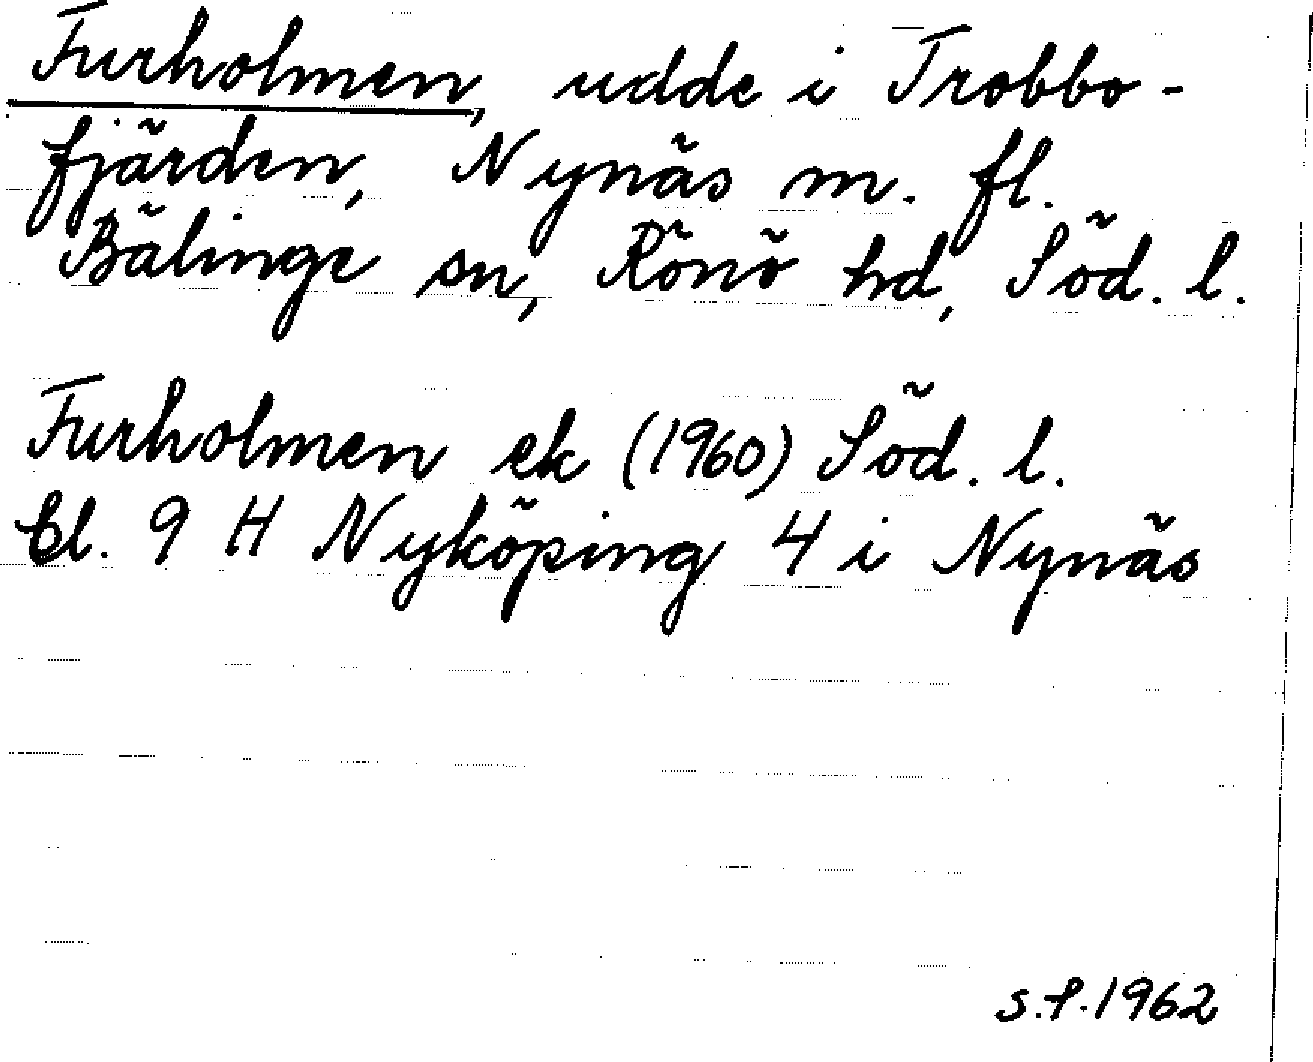 Furholmen, udde i Trobbo-
fjärden, Nynäs m. fl.
Bälinge sn, Rönö hd, Söd. l.
Furholmen ek (1960) Söd. l.
Bl. 9 H Nyköping 4 i Nynäs
S.P. 1962